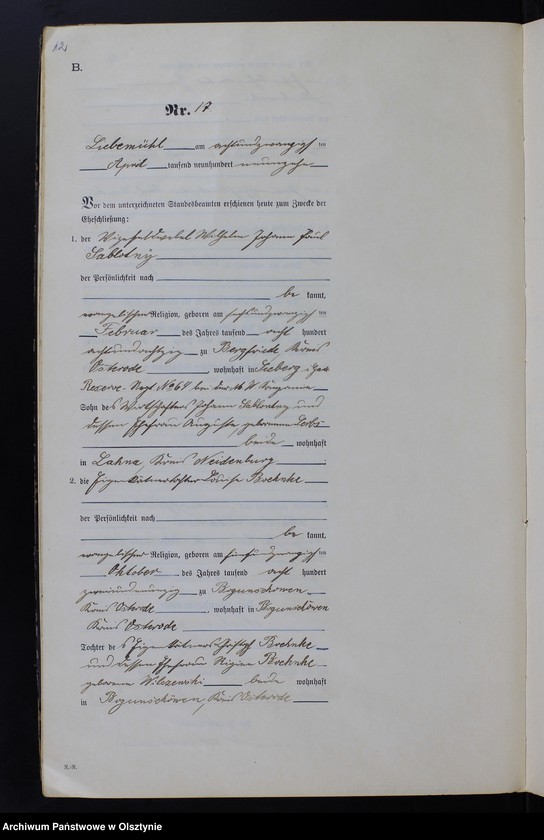 12
B.
Nr. 17
Liebemühl am achtundzwanzigsten
April tausend neunhundert neunzehn
Vor dem unterzeichneten Standesbeamten erschienen heute zum Zwecke der
Eheschließung:
1. der Vizefeldwebel Wilhelm Johann Paul
Sablotny
der Persönlichkeit nach
be kannt,
evangelischer Religion, geboren am sechsundzwanzigsten
Februar des Jahres tausend acht hundert
achtundachtzig zu Bergfriede Kreis
Osterode, wohnhaft in
Reserve No 64 bei der
Sohn des Wirtschafters Johann Sablotny und
dessen Ehefrau Auguste, geborene
beide wohnhaft
in Lahna, Kreis Neidenburg
2. die Eigenkätnertochter Louise Boehnke
der Persönlichkeit nach
be kannt,
evangelischer Religion, geboren am
Oktober des Jahres tausend acht hundert
zweiundneunzig zu Bogunschöwen
Kreis Osterode, wohnhaft in Bogunschöwen
Kreis Osterode
Tochter des Eigenkätners Boehnke
und dessen Ehefrau Regine Boehnke
geborene Wilczewski beide wohnhaft
in Bogunschöwen, Kreis Osterode
Archiwum Państwowe w Olsztynie